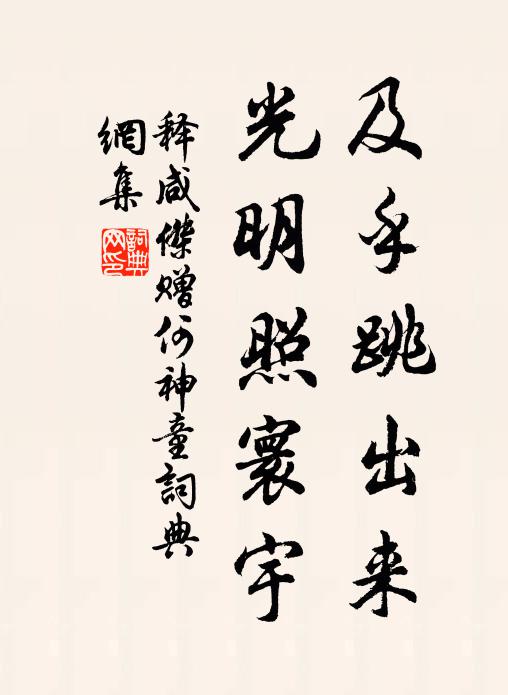 及乎跳出来
光明照寰宇
释咸傑赠何神童詞典
網集
詞典網印